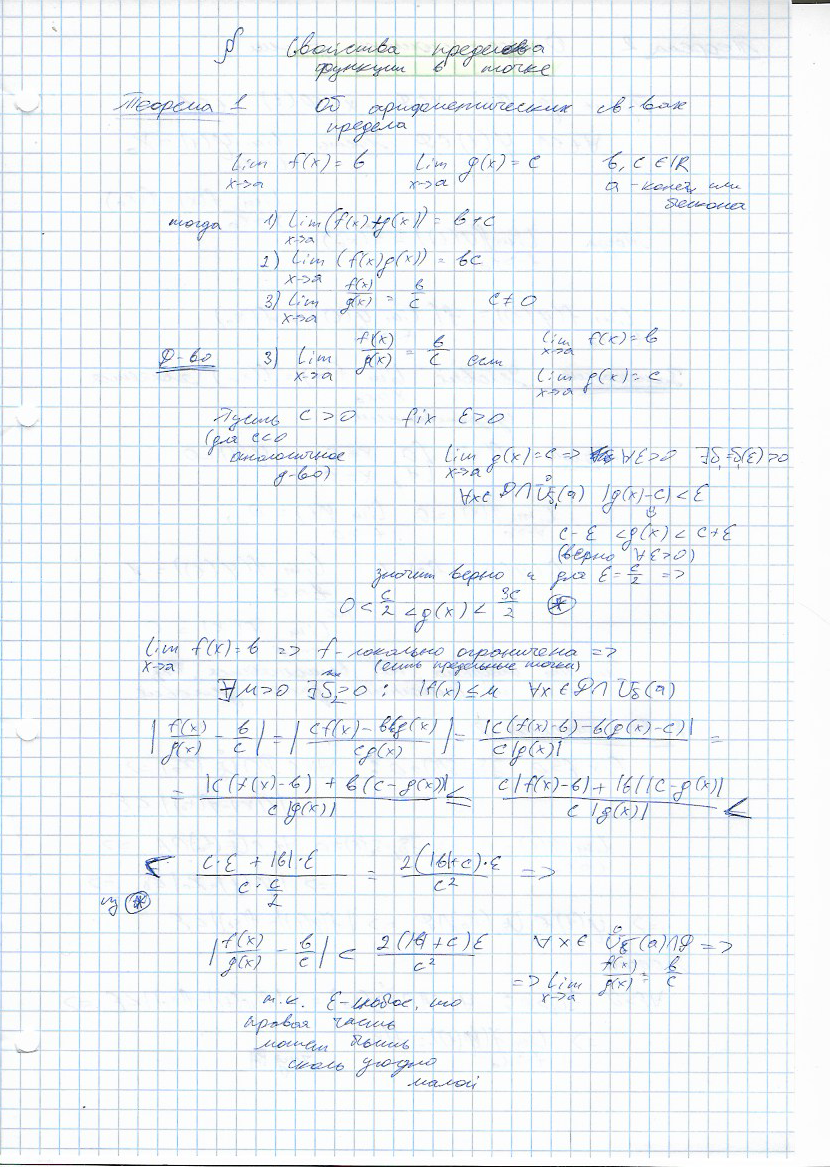 § Свойства предела
функции в точке
Теорема 1 Об арифметических св-вах
предела
lim f(x) = b lim g(x) = c b, c ∈ ℝ
x→a x→a a - конечн или
тогда 1) lim (f(x)+g(x)) = b+c
x→a
2) lim (f(x)g(x)) = bc
x→a
3) lim f(x)/g(x) = b/c c ≠ 0
x→a
Д-во 3) lim f(x)/g(x) = b/c если lim f(x) = b
x→a x→a
lim g(x) = c
x→a
Пусть c > 0 fix ε>0
(для c<0
аналогичное
д-во)
lim g(x) = c => ∀ε>0 ∃δ₁=δ₁(ε)>0
x→a
∀x∈D∩Ůδ₁(a) |g(x)-c|<ε
⇕
c-ε < g(x) < c+ε
(верно ∀ε>0)
значит верно и для ε=c/2 =>
0 < c/2 < g(x) < 3c/2 (*)
lim f(x) = b => f - локально ограничена =>
x→a (есть предельные точки)
∃M>0 ∃δ₂>0 : |f(x)| ≤ M ∀x∈D∩Ůδ₂(a)
|f(x)/g(x) - b/c| = |(cf(x) - bg(x))/(cg(x))| = |c(f(x)-b) - b(g(x)-c)|/(c|g(x)|) =
= |c(f(x)-b) + b(c-g(x))|/(c|g(x)|) ≤ (c|f(x)-b| + |b||c-g(x)|)/(c|g(x)|) <
< (c·ε + |b|·ε)/(c·c/2) = 2(|b|+c)·ε/c² =>
из (*)
|f(x)/g(x) - b/c| < 2(|b|+c)ε/c² ∀x∈Ůδ(a)∩D =>
=> lim f(x)/g(x) = b/c
x→a
т.к. ε-любое, то
правая часть
может быть
сколь угодно
малой